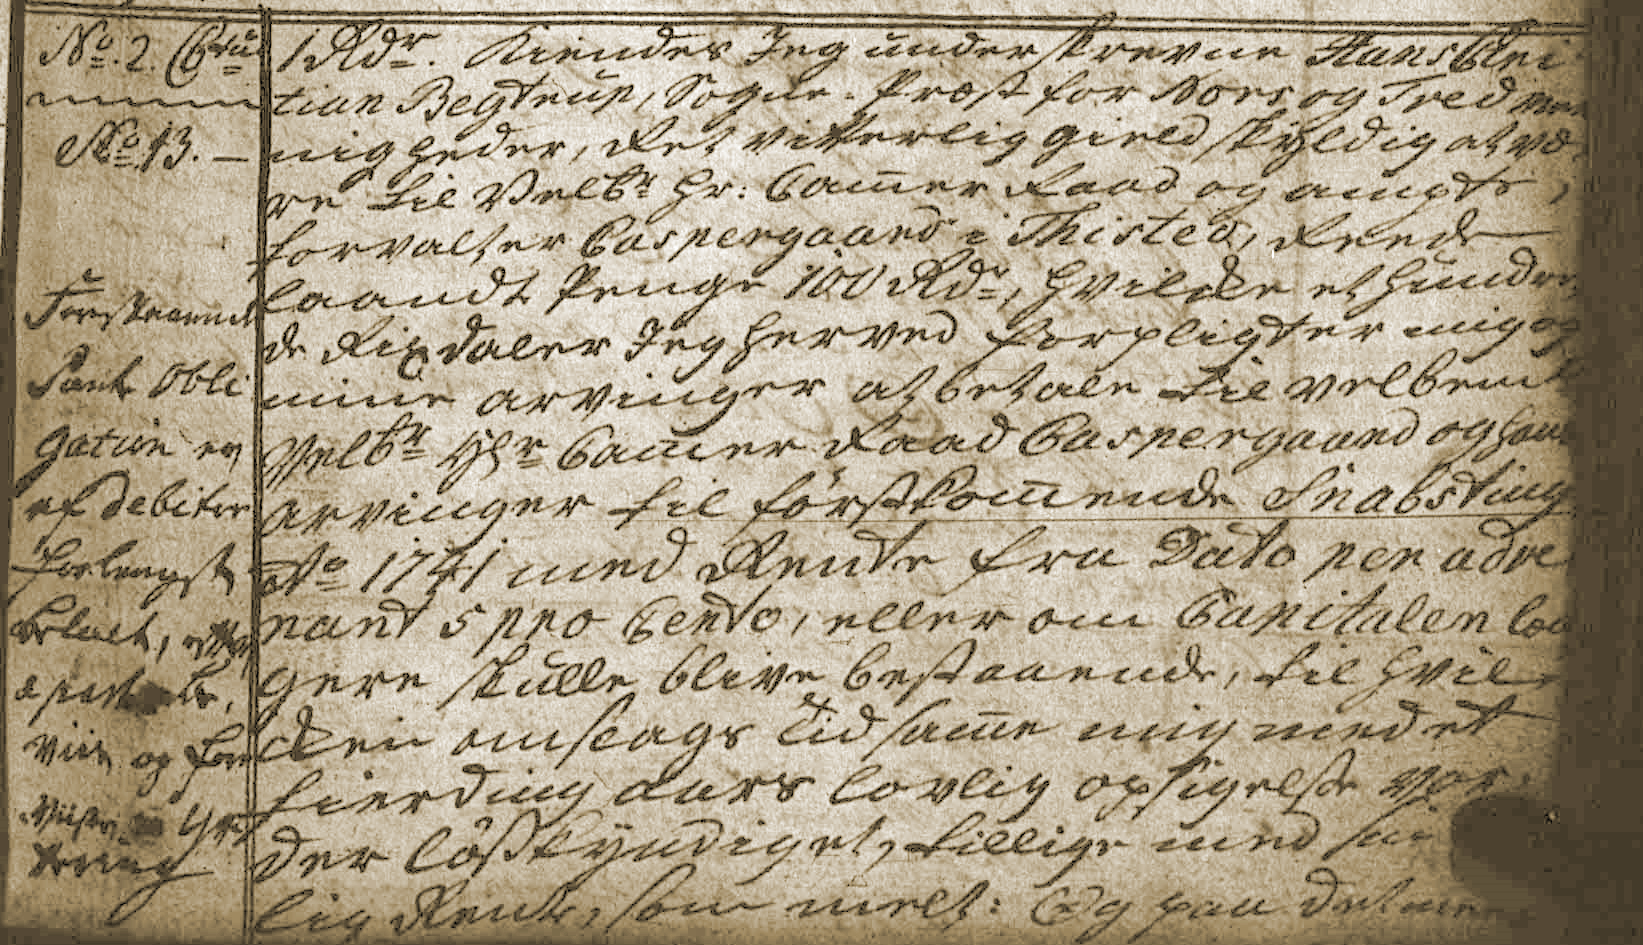 No. 2.
No. 13.
Forstaaende
Pant Obli
gation er
af Debitor
forlengst
betalt, efter
og
1 Rdr. Kiendes Jeg underskrevne Hans Chri
tian Begtrup, Sogne-Præst for Nors og Tved Me
nigheder, Ret vitterlig gield skyldig at væ
re til Velbr. Hr: Cammer Raad og ampts
forvalter Caspergaard i Thisted, Reede
laandt Penge 100 Rdr., hvilcke et hundre
de Rixdaler Jeg herved forpligter mig og
mine arvinger at betale til velbemt
Velbr. Hr. Cammer Raad Caspergaard og hans
arvinger til førstkommende Snabsting
Ao 1741 med Rente fra Dato per adve
nant 5 pro Cento, eller om Capitalen læn
gere skulle blive bestaaende, til hvil
cken omslags tid samme mig med et
fierding aars lovlig opsigelse vor
der løskyndiget, tillige med
lig Rente, som melt: Og paa det